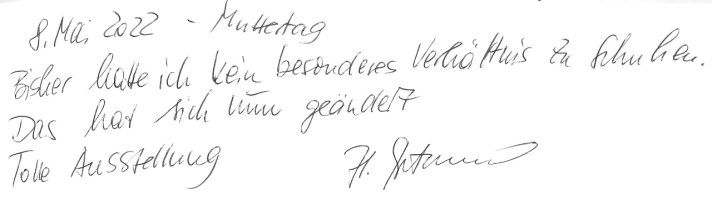 8. Mai 2022 - Muttertag
Bisher hatte ich kein besonderes Verhältnis zu Schuhen.
Das hat sich nun geändert
Tolle Ausstellung H.